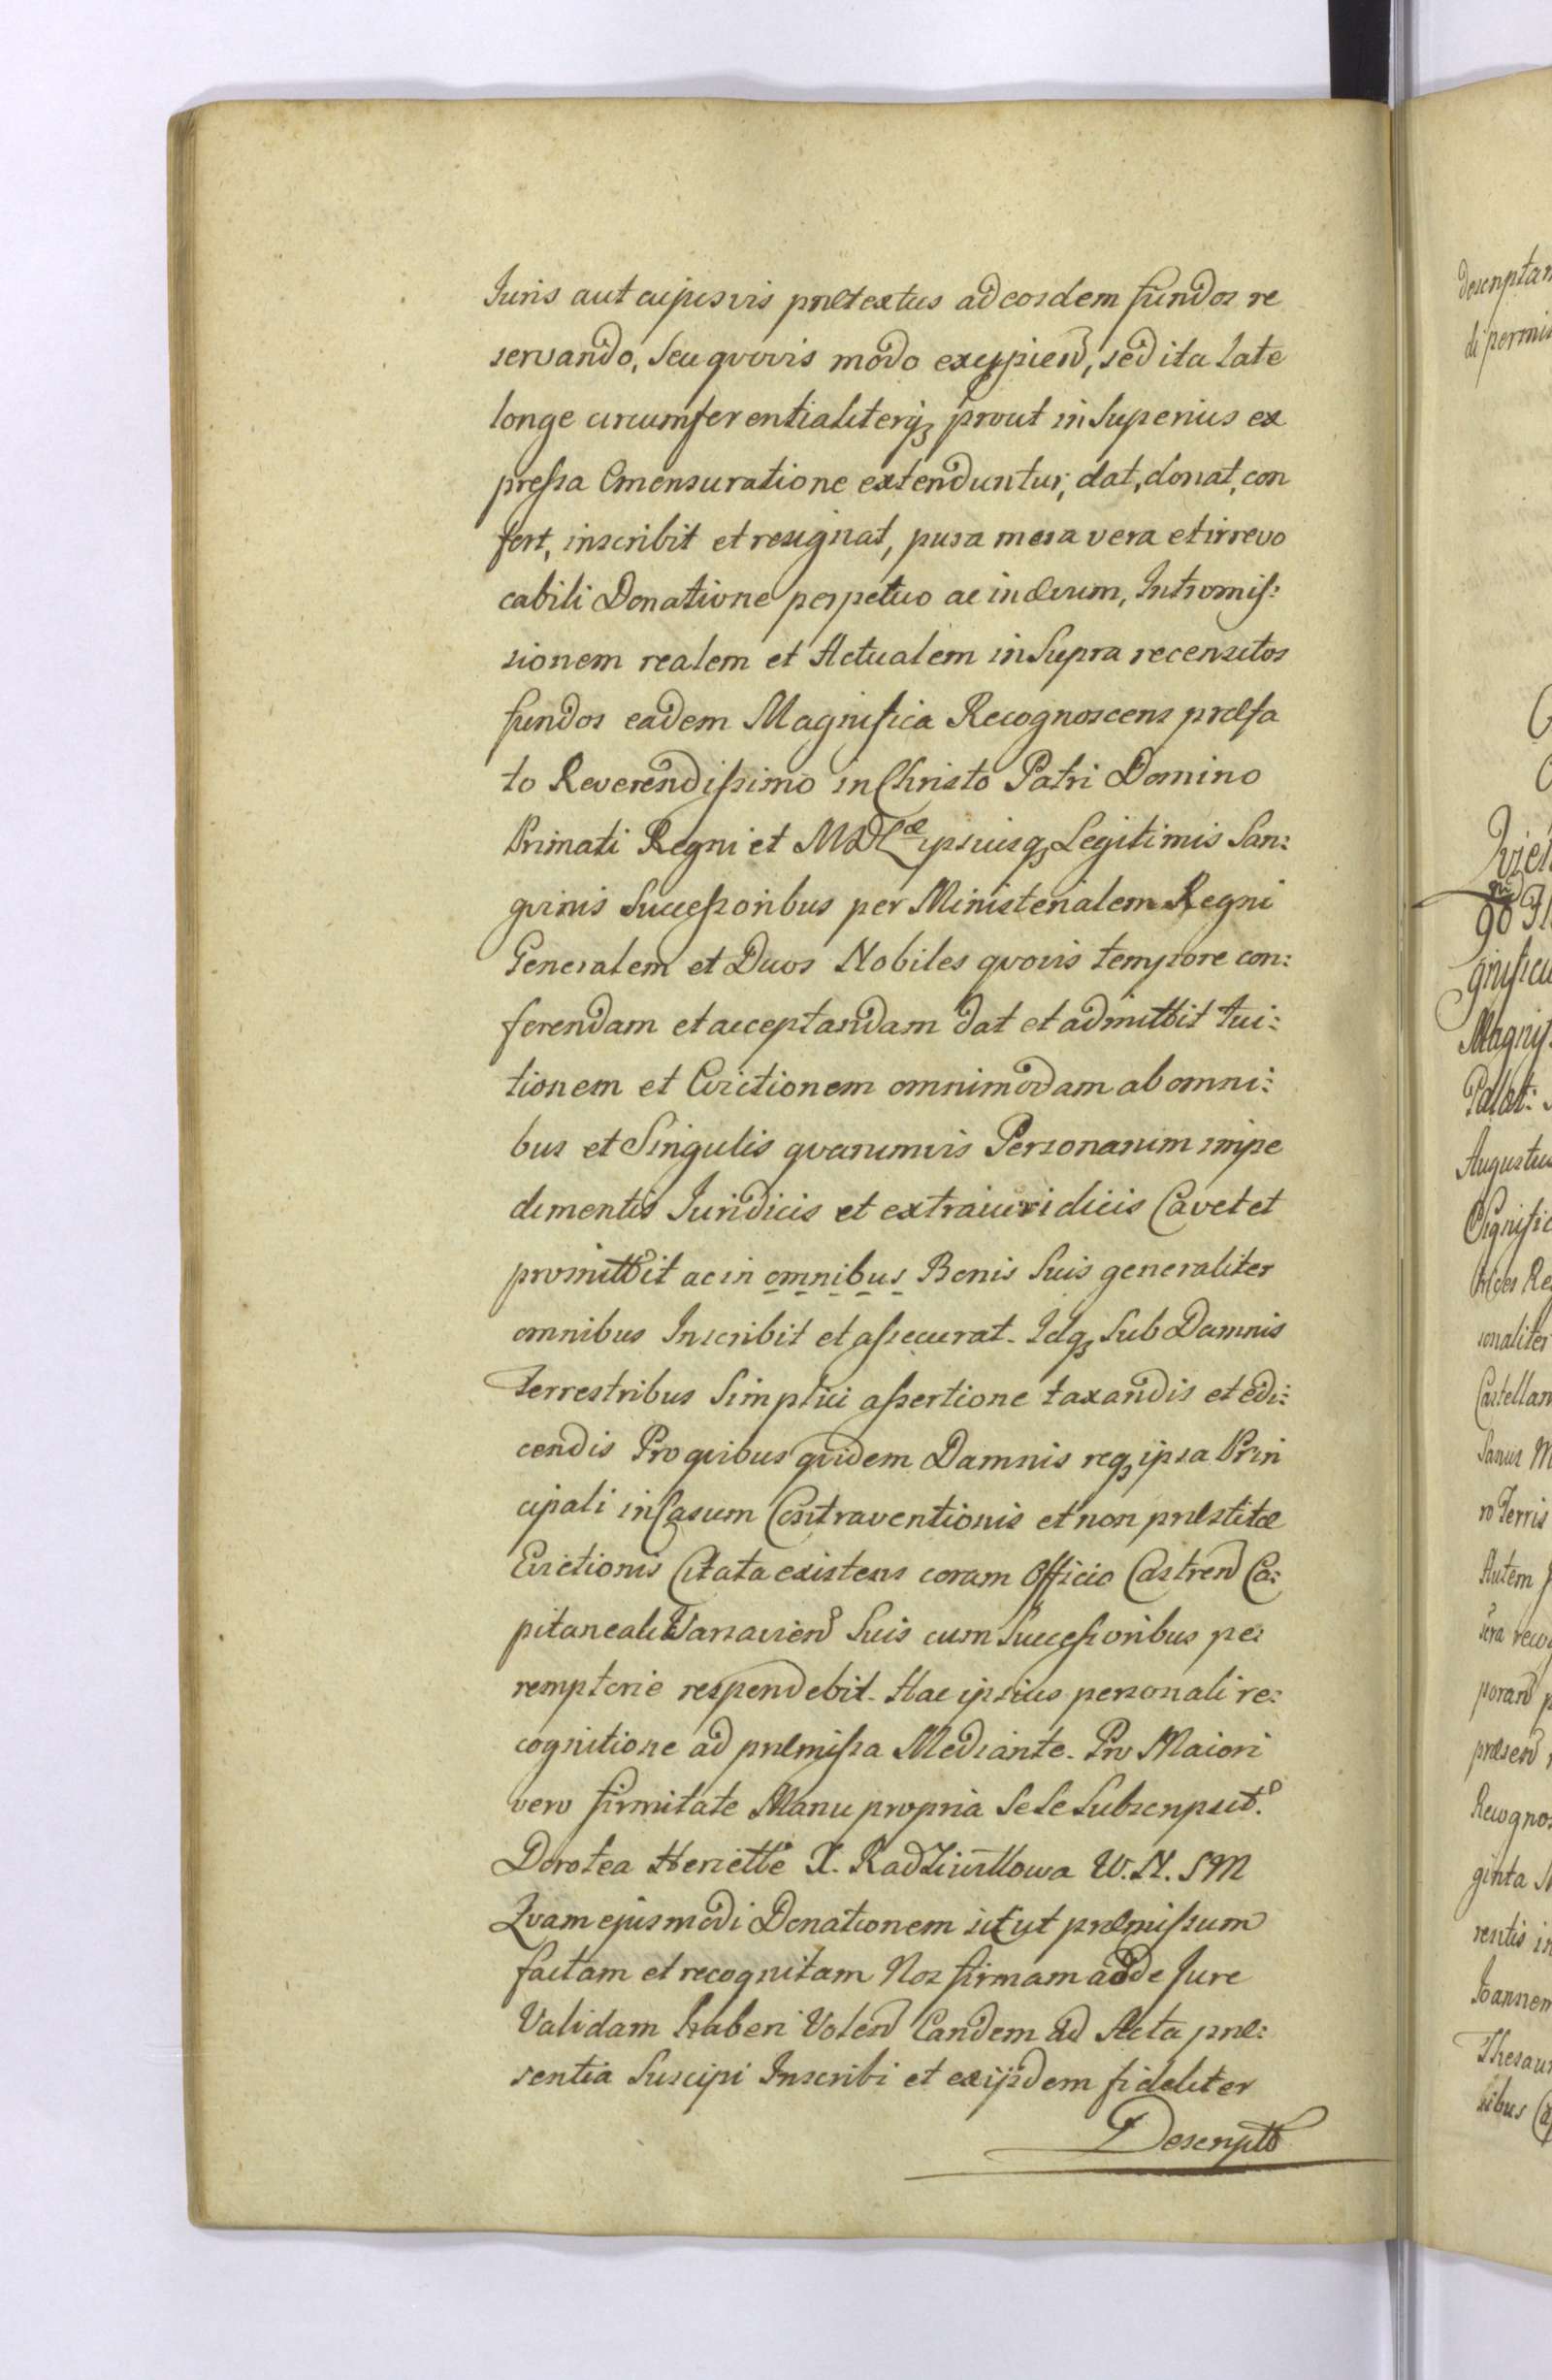 Juris aut cujusvis prætextus ad eosdem fundos re
servando, seu qvovis modo excypiend, sed ita late
longe circumferentialiterq3 prout in Superius ex
pressa Emensuratione extenduntur, dat, donat, con
fert, inscribit et resignat, pura mera vera et irrevo
cabili Donatione perpetuo ac in ævum, Intromis:
sionem realem et Actualem in Supra recensitos
fundos eadem Magnifica Recognoscens præfa
to Reverendissimo in Christo Patri Domino
Primati Regni et MDLæ ipsiusq3 Legitimis San:
gvinis Successoribus per Ministerialem Regni
Generalem et Duos Nobiles qvovis tempore con:
ferendam et acceptandam dat et admittit tui:
tionem et Evictionem omnimodam ab omni:
bus et Singulis qvarumvis Personarum impe
dimentis Juridicis et extraiuridicis Cavet et
promittit ac in omnibus Bonis Suis generaliter
omnibus Inscribit et assecurat. Idq3 Sub Damnis
Terrestribus Simplici assertione taxandis et edi:
cendis Pro qvibus qvidem Damnis req3 ipsa Prin
cipali in Casum Contraventionis et non præstitæ
Evictionis Citata existens coram Officio Castrend Ca:
pitaneali Varsaviend Suis cum Successoribus pe
remptorie respondebit. Hac ipsius personali re:
cognitione ad præmissa Mediante. Pro Maiori
vero firmitate Manu propria Se Se Subscripsit.
Dorotea Heriette X. Radziwiłłowa W. N. S M
Qvam ejusmodi Donationem sic ut præmissum
factam et recognitam Nos firmam ac de Jure
Validam haberi Volend Eandem ad Acta præ:
sentia Suscipi Inscribi et ex ijsdem fideliter
Descriptt
descriptam
di permis
Magnif
Palat:
Augustu
Castellan
ro Terris
Autem
præsend
Recognos
ginta
rentis in
Joannem
Thesaur